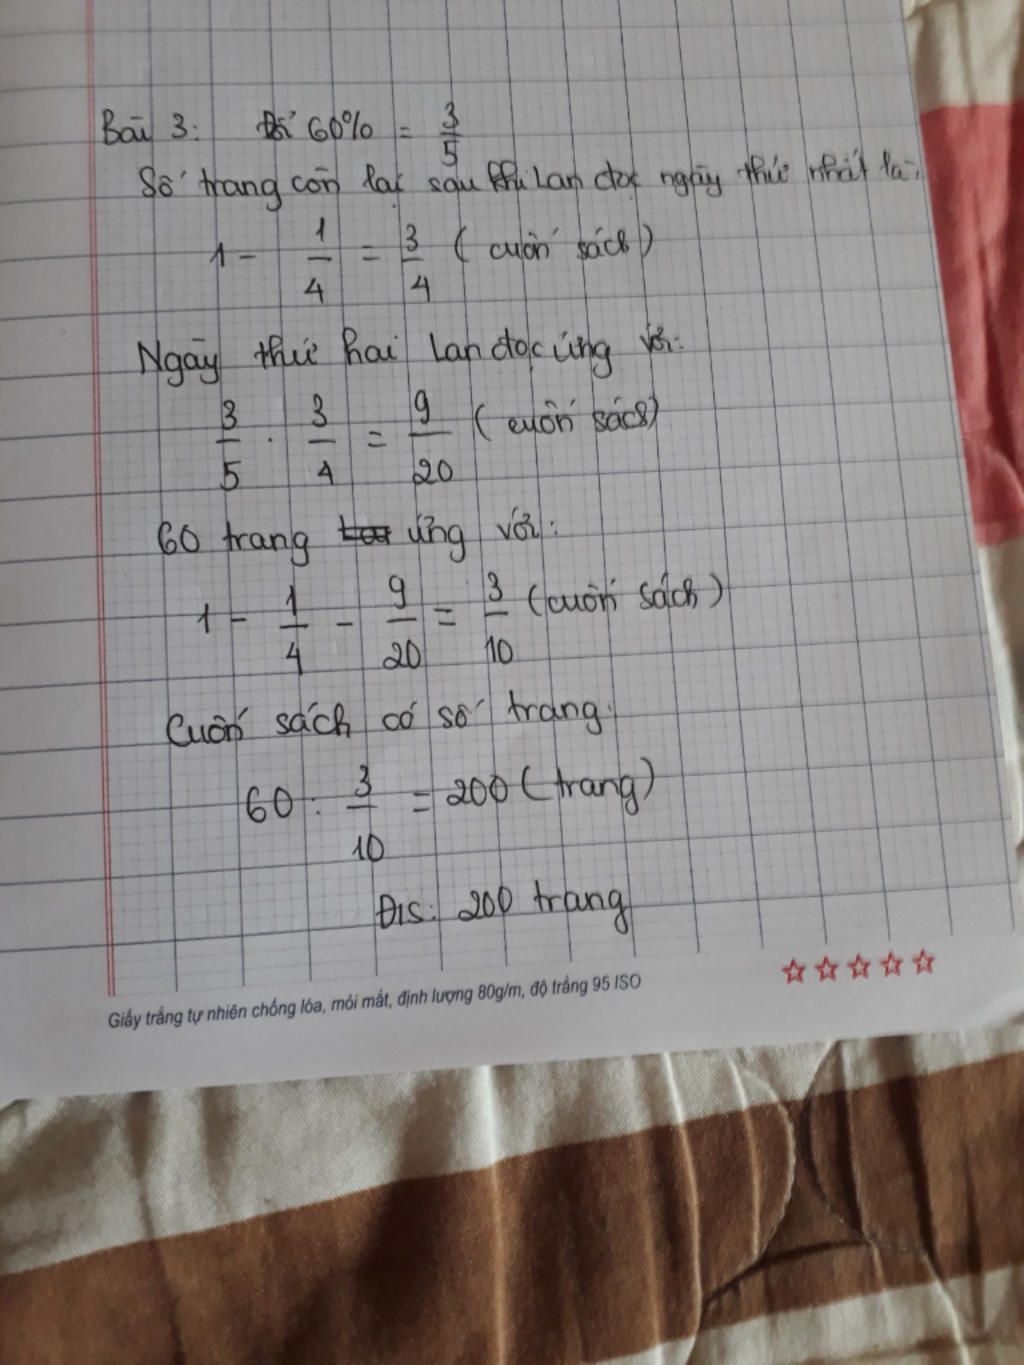 Bài 3: Đổi 60% = 3/5
Số trang còn lại sau khi Lan đọc ngày thứ nhất là:
1 - 1/4 = 3/4 (cuốn sách)
Ngày thứ hai Lan đọc ứng với:
3/5 . 3/4 = 9/20 (cuốn sách)
60 trang ứng với:
1 - 1/4 - 9/20 = 3/10 (cuốn sách)
Cuốn sách có số trang:
60 : 3/10 = 200 (trang)
Đ/S: 200 trang
Giấy trắng tự nhiên chống lóa, mỏi mắt, định lượng 80g/m, độ trắng 95 ISO